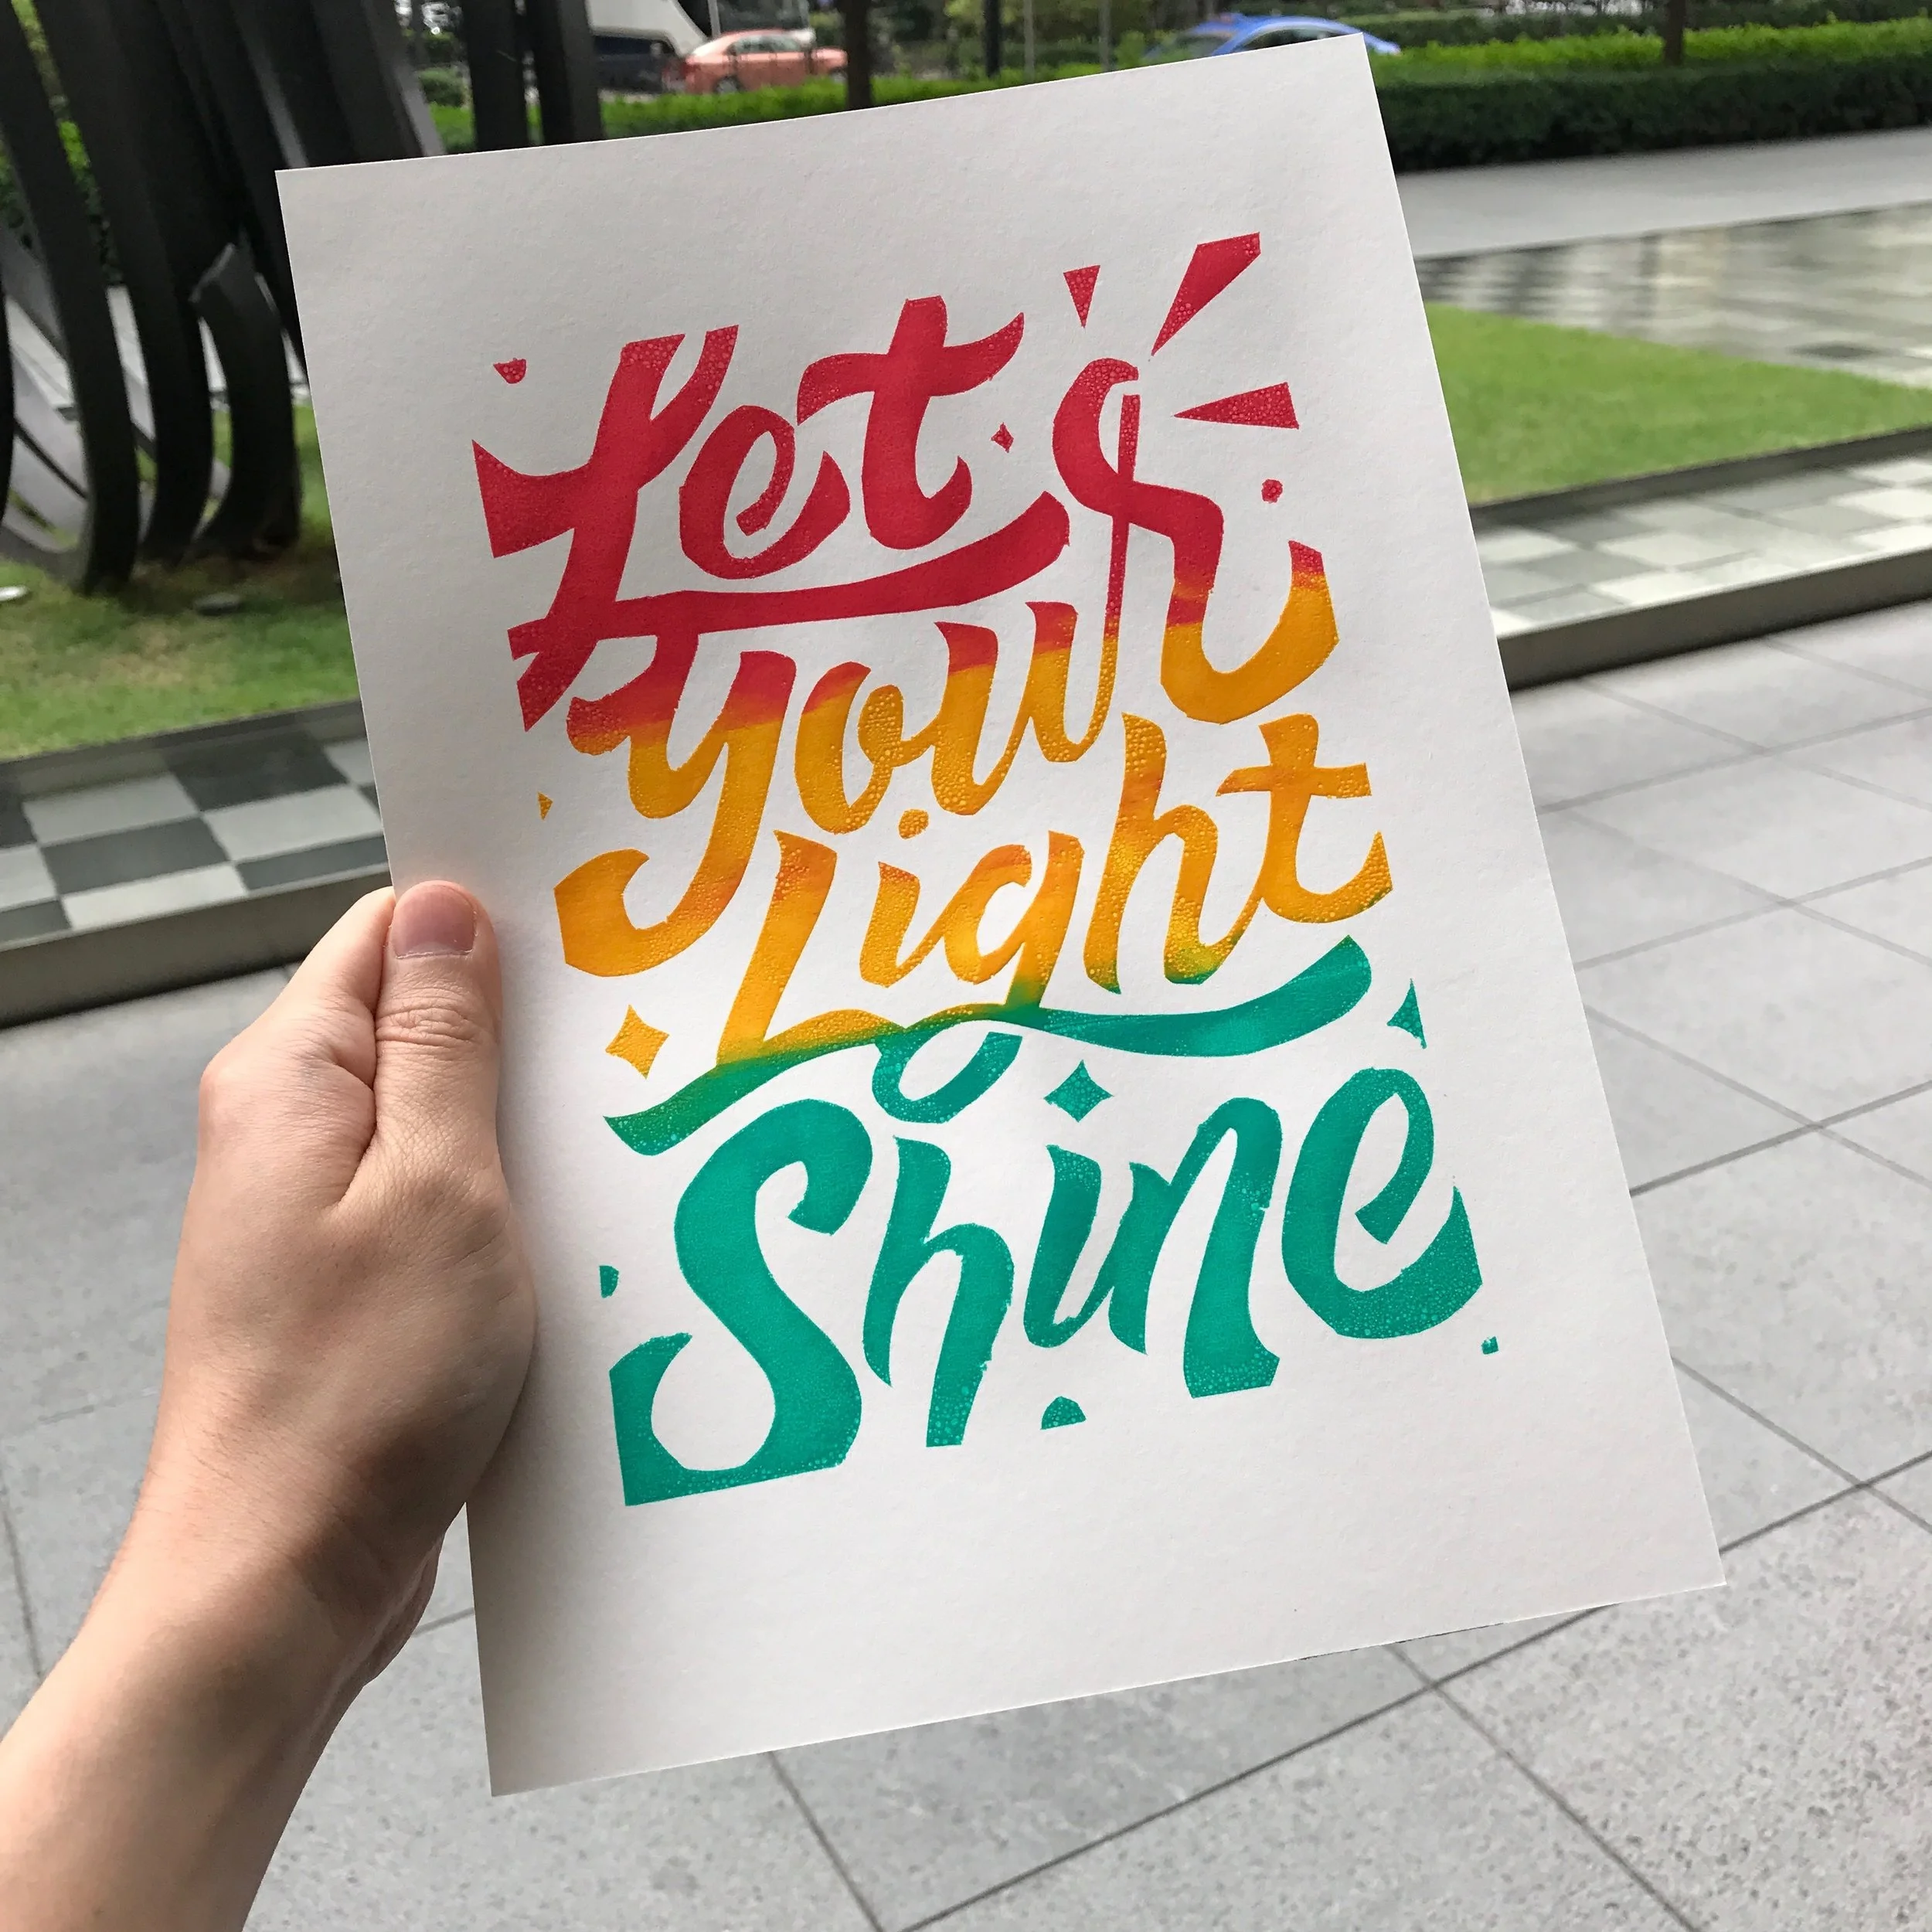 Let
your
Light
Shine